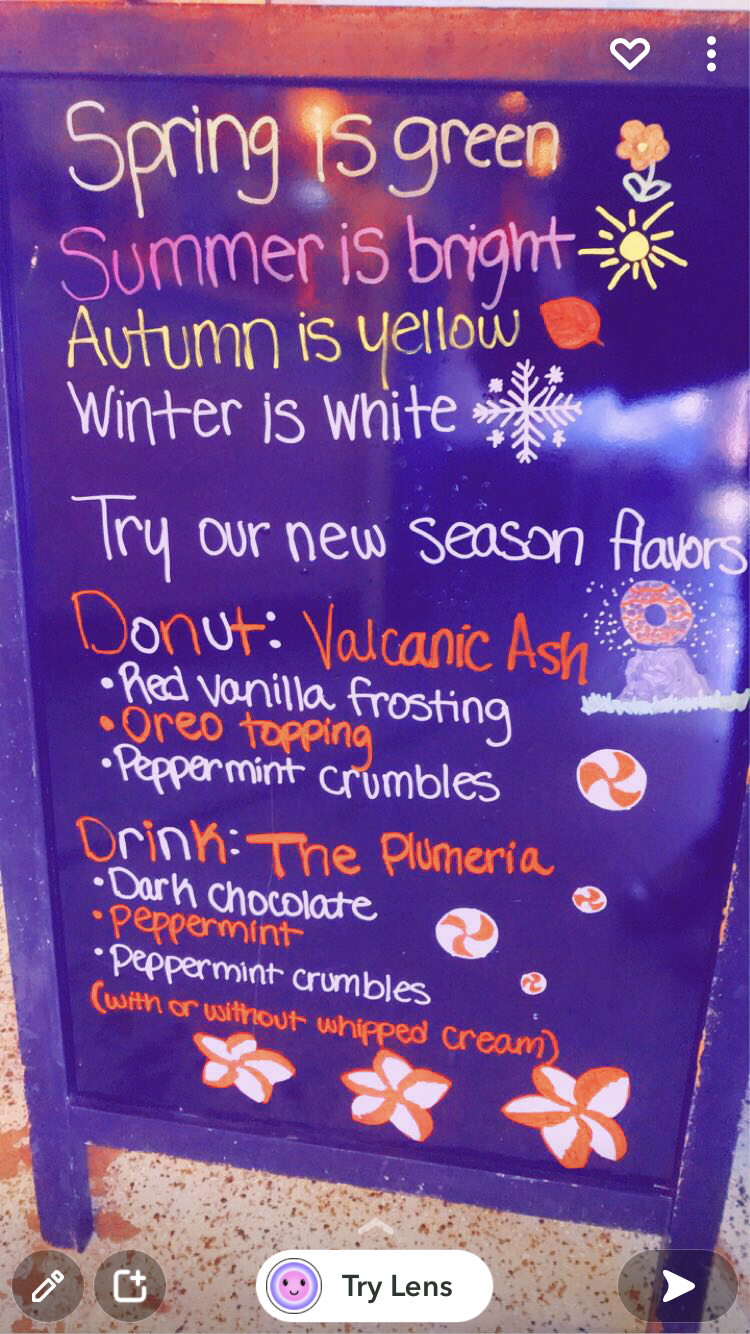 Spring is green
Summer is bright
Autumn is yellow
Winter is white
Try our new season flavors
Donut: Valcanic Ash
• Red vanilla frosting
• Oreo topping
• Peppermint crumbles
Drink: The Plumeria
• Dark chocolate
• Peppermint
• Peppermint crumbles
(with or without whipped cream)
Try Lens